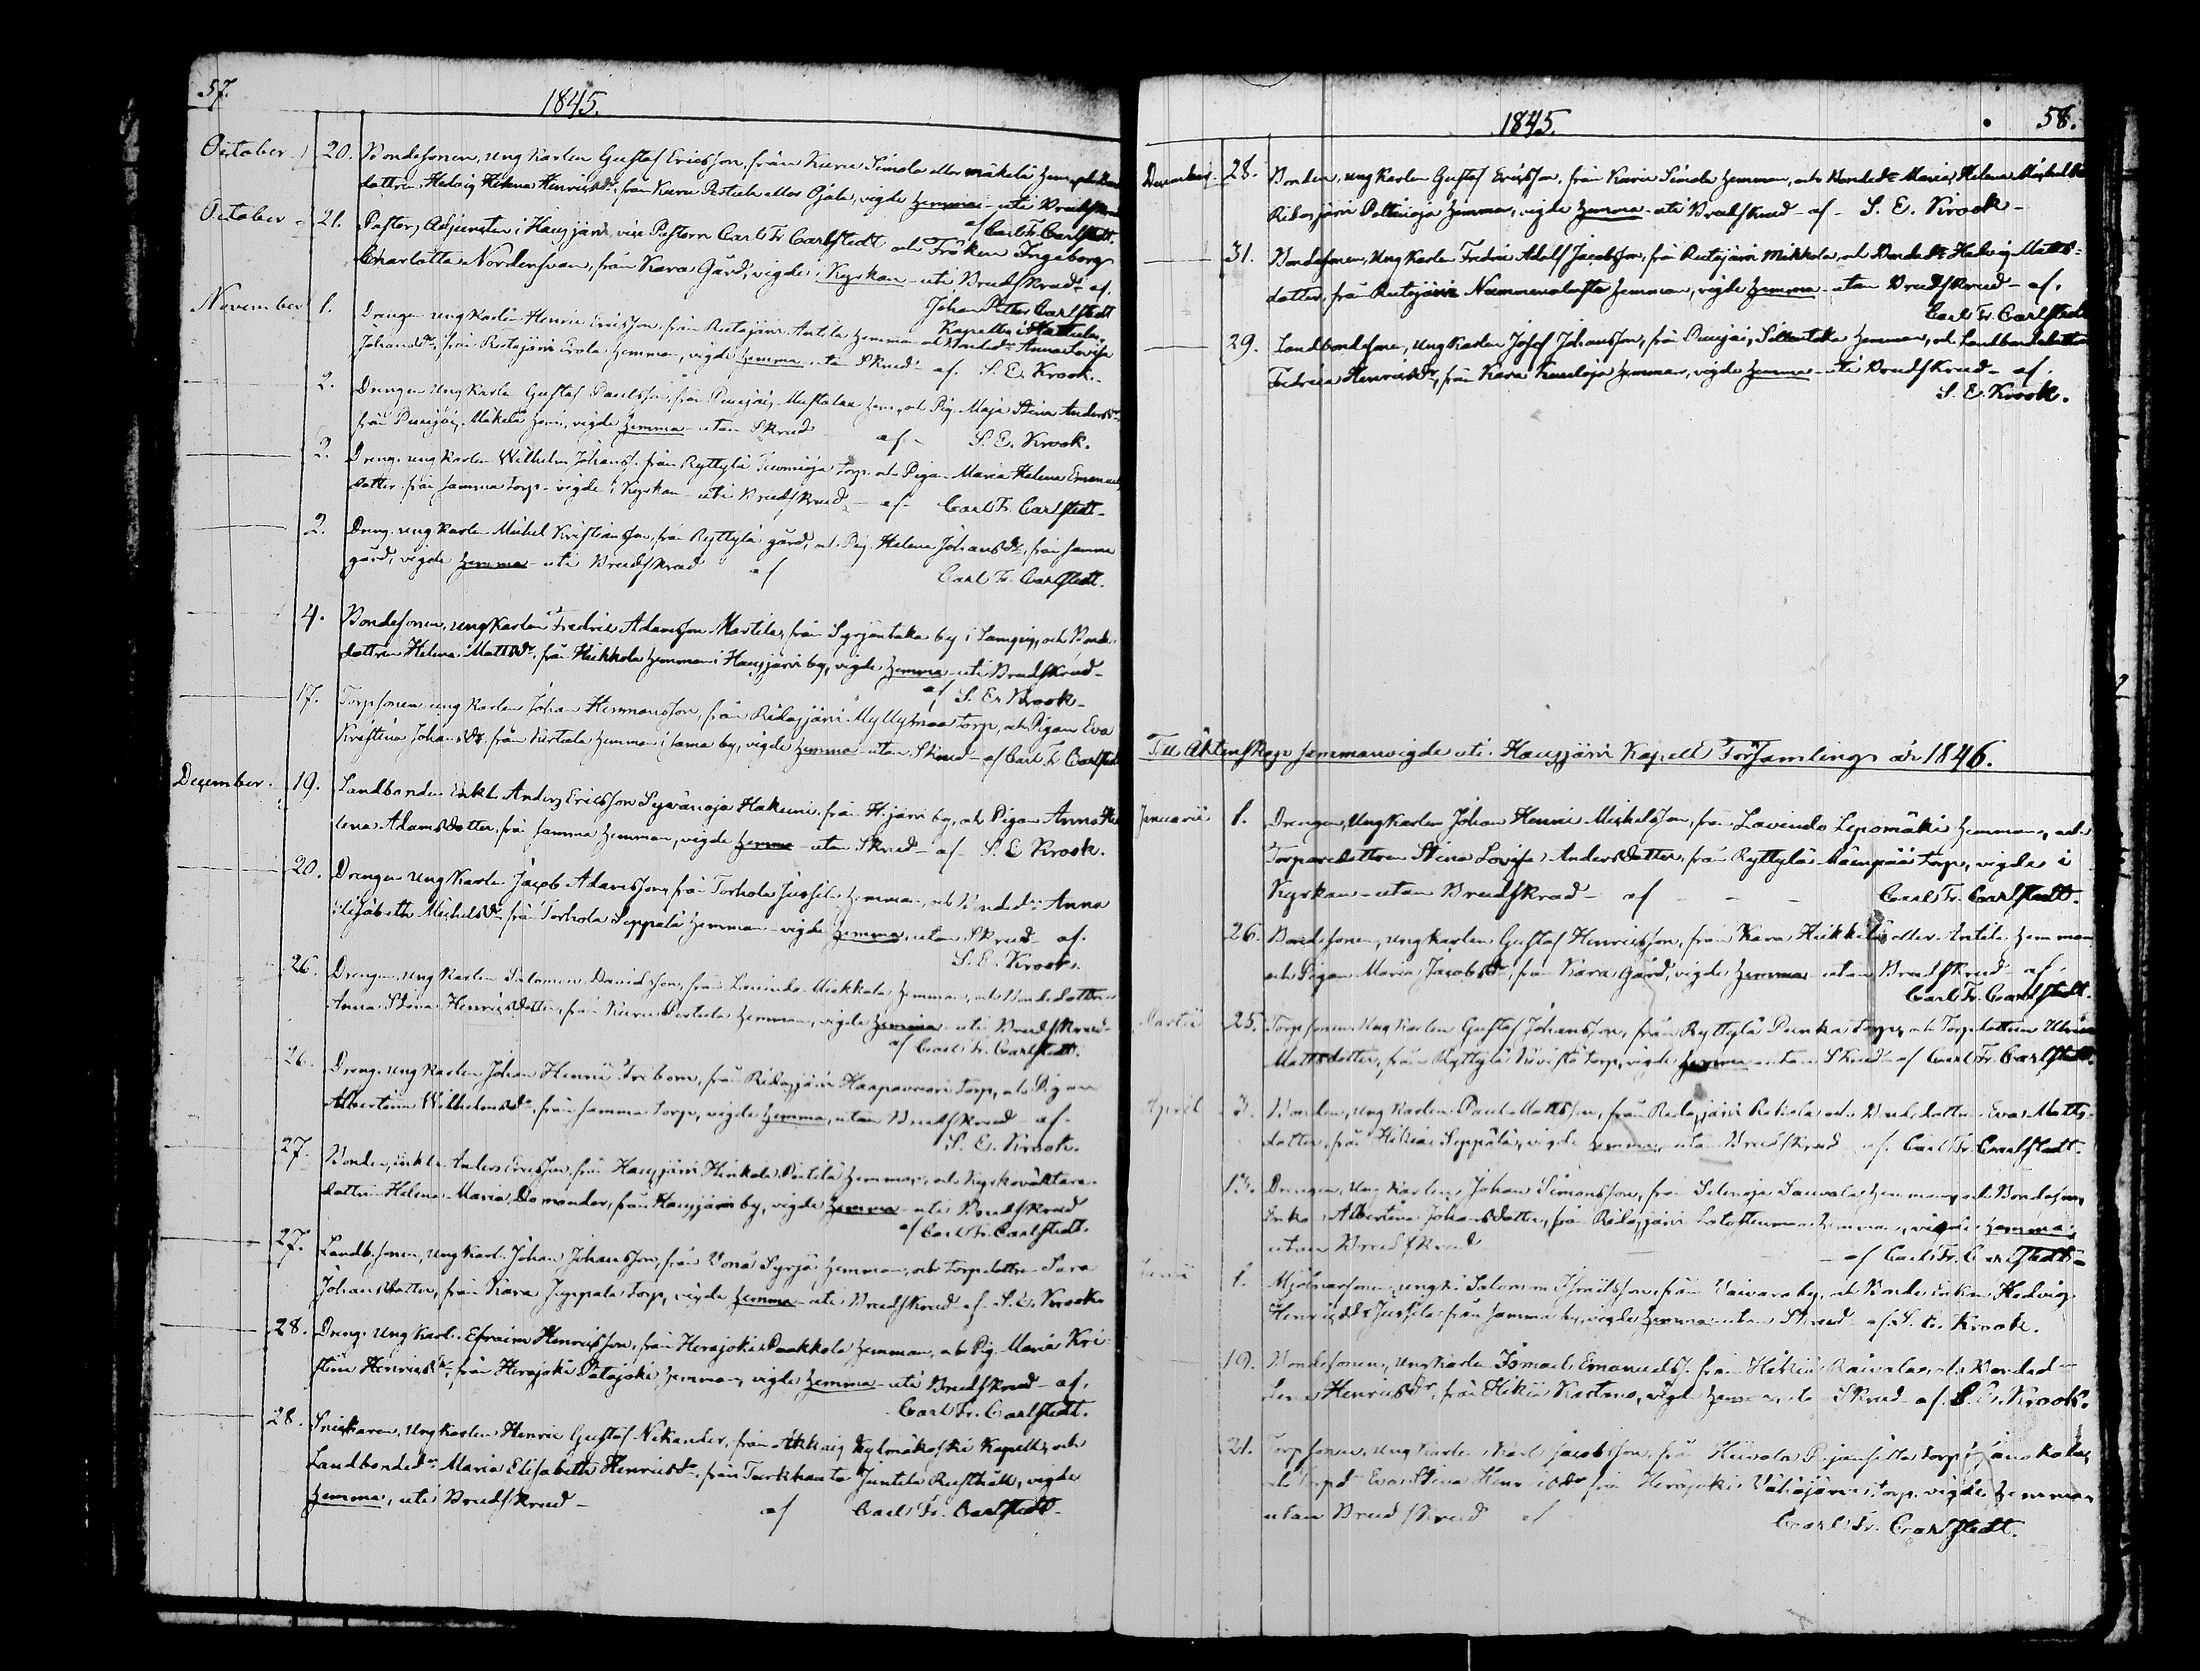 57.
1845.
October 20. Bondesonen, ung Karlen Gustaf Ericsson, från Kuru Simola eller Mäkelä hemman, och Bonde
dottren Hedvig Helena Henricsdr, från Kuru Pertula eller Ojala, vigde hemma uti Brudskrud
af Carl Fr. Carlstedt.
October 21. Pastors Adjuncten i Hausjärvi, vice Pastorn Carl Fr Carlstedt och Fröken Ingeborg
Charlotta Nordensvan, från Kara Gård, vigde i Kyrkan uti Brudskrud af
Johan Petter Carlstedt
Kapellan i Hattula.
November 1. Drengen ung Karlen Henric Ericsson, från Ridasjärvi Antila hemman och Bondedr Anna Lovisa
Johansdr, från Ridasjärvi Erola hemman, vigde hemma utan Skrud af S. E. Krook.
2. Drengen ung Karlen Gustaf Paulsson, från Pusijäis Mustalan hem, och Pig. Maja Stina Andersdr
från Pusijäis Mäkelä hem, vigde hemma utan Skrud af S. E. Krook.
2. Dreng. ung Karlen Wilhelm Johanss. från Ryttylä Tuomioja torp och Pigan Maria Helena Emanuels
dotter från samma torp vigde i Kyrkan uti Brudskrud af Carl Fr. Carlstedt
2. Dreng. ung Karlen Michel Kristiansson, från Ryttylä gård, och Pig. Helena Johansdr, från samma
gård, vigde hemma uti Brudskrud af Carl Fr. Carlstedt.
4. Bondesonen, ung Karlen Fredric Adamsson Martila, från Syrjäntaka by i Lampis, och Bonde
dottren Helena Mattsdr. från Heikkola hemman i Hausjärvi by, vigde hemma uti Brudskrud
af S. E. Krook
17. Torpsonen ung Karlen Johan Hermansson, från Ridasjärvi Myllymaa torp, och Pigan Eva
Kristina Johansdr. från Kertula hemman i sama by, vigde hemma utan Skrud af Carl Fr Carlstedt
December. 19. Landbonden Enkl. Anders Ericsson Syvänoja Hakuni, från H.järvi by, och Pigan Anna He
lena Adamsdotter, från samma hemman, vigde hemma utan Skrud af S. E Krook.
20. Drengen ung Karlen Jacob Adamsson, från Torhola Jussila hemman, och Bondedr Anna
Elisabeth Michelsdr från Torhola Seppälä hemman vigde hemma, utan Skrud af.
S. E. Krook.
26. Drengen, ung Karlen Salomon Davidsson, från Lavindo Mickkola hemman, och Bondedottren
Anna Stina Henricsdotter, från Kuru Pertula hemman, vigde hemma uti Brudskrud
af Carl Fr. Carlstedt.
26. Dreng. ung Karlen Johan Henric Friborn, från Ridasjärvi Haapavuori torp, och Pigan
Albertina Wilhelmsdr, från samma torp, vigde hemma, utan Brudskrud af
S. E. Krook.
27. Bonden, enkl. Anders Ericsson, från Hausjärvi Heikola Pietilä hemman, och Kyrkoväktare
dottren Helena Maria Domander, från Hausjärvi by, vigde hemma uti Brudskrud
af Carl Fr. Carlstedt.
27. Landb.sonen, ung Karl. Johan Johansson, från Vonå Syrjä hemman, och torpdottren Sara
Johansdotter, från Kara Seppälä torp, vigde hemma uti Brudskrud af S. E. Krook
28. Dreng. ung Karl. Efraim Henricsson, från Herajoki Paakkola hemman, och Pig. Maria Kri
stina Henricsdr, från Herajoki Patajoki hemman, vigde hemma uti Brudskrud af.
Carl Fr. Carlstedt.
28. Snickaren, ung Karlen Henric Gustaf Nikander, från Akkas Kylmäkoski Kapell, och
Landbondedr Maria Elisabeth Henricsdr, från Turkhauta Juntila Rusthåll, vigde
hemma, uti Brudskrud af Carl Fr. Carlstedt
1845. 58.
December 28. Bonden, ung Karlen Gustaf Ericsson, från Karu Simola hemman, och Bondedr Maria Helena Michelsdr
Ridasjärvi Peltinoja hemman, vigde hemma uti Brudskrud af S. E. Krook
31. Bondesonen, ung Karlen Fredric Adolf Jacobsson, från Ridasjärvi Mikkola, och Bondedr Hedvig Matts
dotter, från Ridasjärvi hemman, vigde hemma utan Brudskrud af.
Carl Fr. Carlstedt
29. Landbondesonen, ung Karlen Josef Johansson, från Pusijäis, Sillantaka hemman, och Landbondedottren
Fredrica Henricsdr, från Kara hemman, vigde hemma uti Brudskrud af.
S. E. Krook.
Till Äktenskap sammanvigde uti Hausjärvi Kapell Församling år 1846.
Januarii 1. Drengen, ung Karlen Johan Henric Michelsson, från Lavindo Lepomäki hemman, och
Torparedottren Stina Lovisa Andersdotter, från Ryttylä Mäenpää torp, vigde i
Kyrkan utan Brudskrud af Carl Fr. Carlstedt.
26. Bondesonen, ung Karlen Gustaf Henricsson, från Kara Heikkilä eller Antila hemman
och Pigan Maria Jacobsdr, från Kara Gård, vigde hemma utan Brudskrud af
Carl Fr. Carlstedt.
Martii 25. Torpsonen, ung Karlen Gustaf Johansson, från Ryttylä Punka torp, och Torpdottren Ulrica
Mattsdotter, från Ryttylä torp, vigde hemma utan Skrud af Carl Fr. Carlstedt.
April 3. Bonden, ung Karlen Paul Mattsson, från Ridasjärvi och Bondedottren Eva Matts
dotter, från Hikiä Seppälä, vigde hemma utan Brudskrud af. Carl Fr. Carlstedt.
13. Drengen, ung Karlen Johan Simonsson, från Selänoja Sauvala hemman, och Bondesons
Enka Albertina Johansdotter, från Ridasjärvi hemman, vigde hemma,
utan Brudskrud af Carl Fr. Carlstedt
Junii 1. Mjölnarsonen, ung K. Salomon Israelsson, från Vaivara by, och Bonde Enkan Hedvig
Henricsdr Jussila från samma by, vigde hemma utan Skrud af S. E. Krook.
19. Bondesonen, ung Karlen Ismael Emanuelss. från Hikiä Raivala, och Bondedr
Henricsdr, från Hikiä Kartmo, vigde hemma, Skrud af S. E. Krook.
21. Torpsonen, ung Karlen Karl Jacobsson, från torp i Janakkala,
och Torpdr Eva Stina Henricsdr från Herajoki Vähäjärvi torp, vigde hemma,
utan Brudskrud af Carl Fr. Carlstedt.